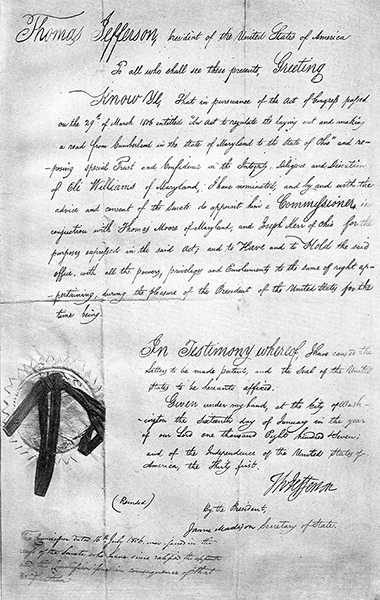 Thomas Jefferson, President of the United States of America
To all who shall see these presents, Greeting
Know Ye, That in pursuance of the Act of Congress passed
on the 29th of March 1806 entitled "An Act to regulate the laying out and making
a road from Cumberland in the State of Maryland to the State of Ohio" and re-
posing special Trust and Confidence in the Integrity, Diligence and Discretion
of Eli Williams of Maryland, I have nominated, and by and with the
advice and consent of the Senate do appoint him a Commissioner, in
conjunction with Thomas Moore of Maryland, and Joseph Kerr of Ohio for the
purposes expressed in the said Act; and to Have and to Hold the said
office, with all the powers, privileges and Emoluments to the same of right ap-
pertaining, during the pleasure of the President of the United States for the
time being.
In Testimony whereof, I have caused the
Letters to be made patent, and the Seal of the United
States to be hereunto affixed.
Given under my hand, at the City of Wash-
ington the Sixteenth day of January in the year
of our Lord one thousand Eight hundred & seven;
and of the Independence of the United States of
America, the Thirty first.
Th Jefferson
(Recorded)
By the President,
James Madison Secretary of State.
Commission dated 16th July 1806 was issued in the
recess of the Senate who have since ratified the
in consequence of that